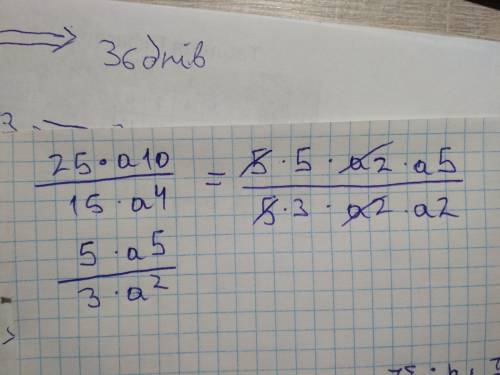 ⟹ 36 днів
25 · a10 / 15 · a4 = 5 · 5 · a2 · a5 / 5 · 3 · a2 · a2
5 · a5 / 3 · a²